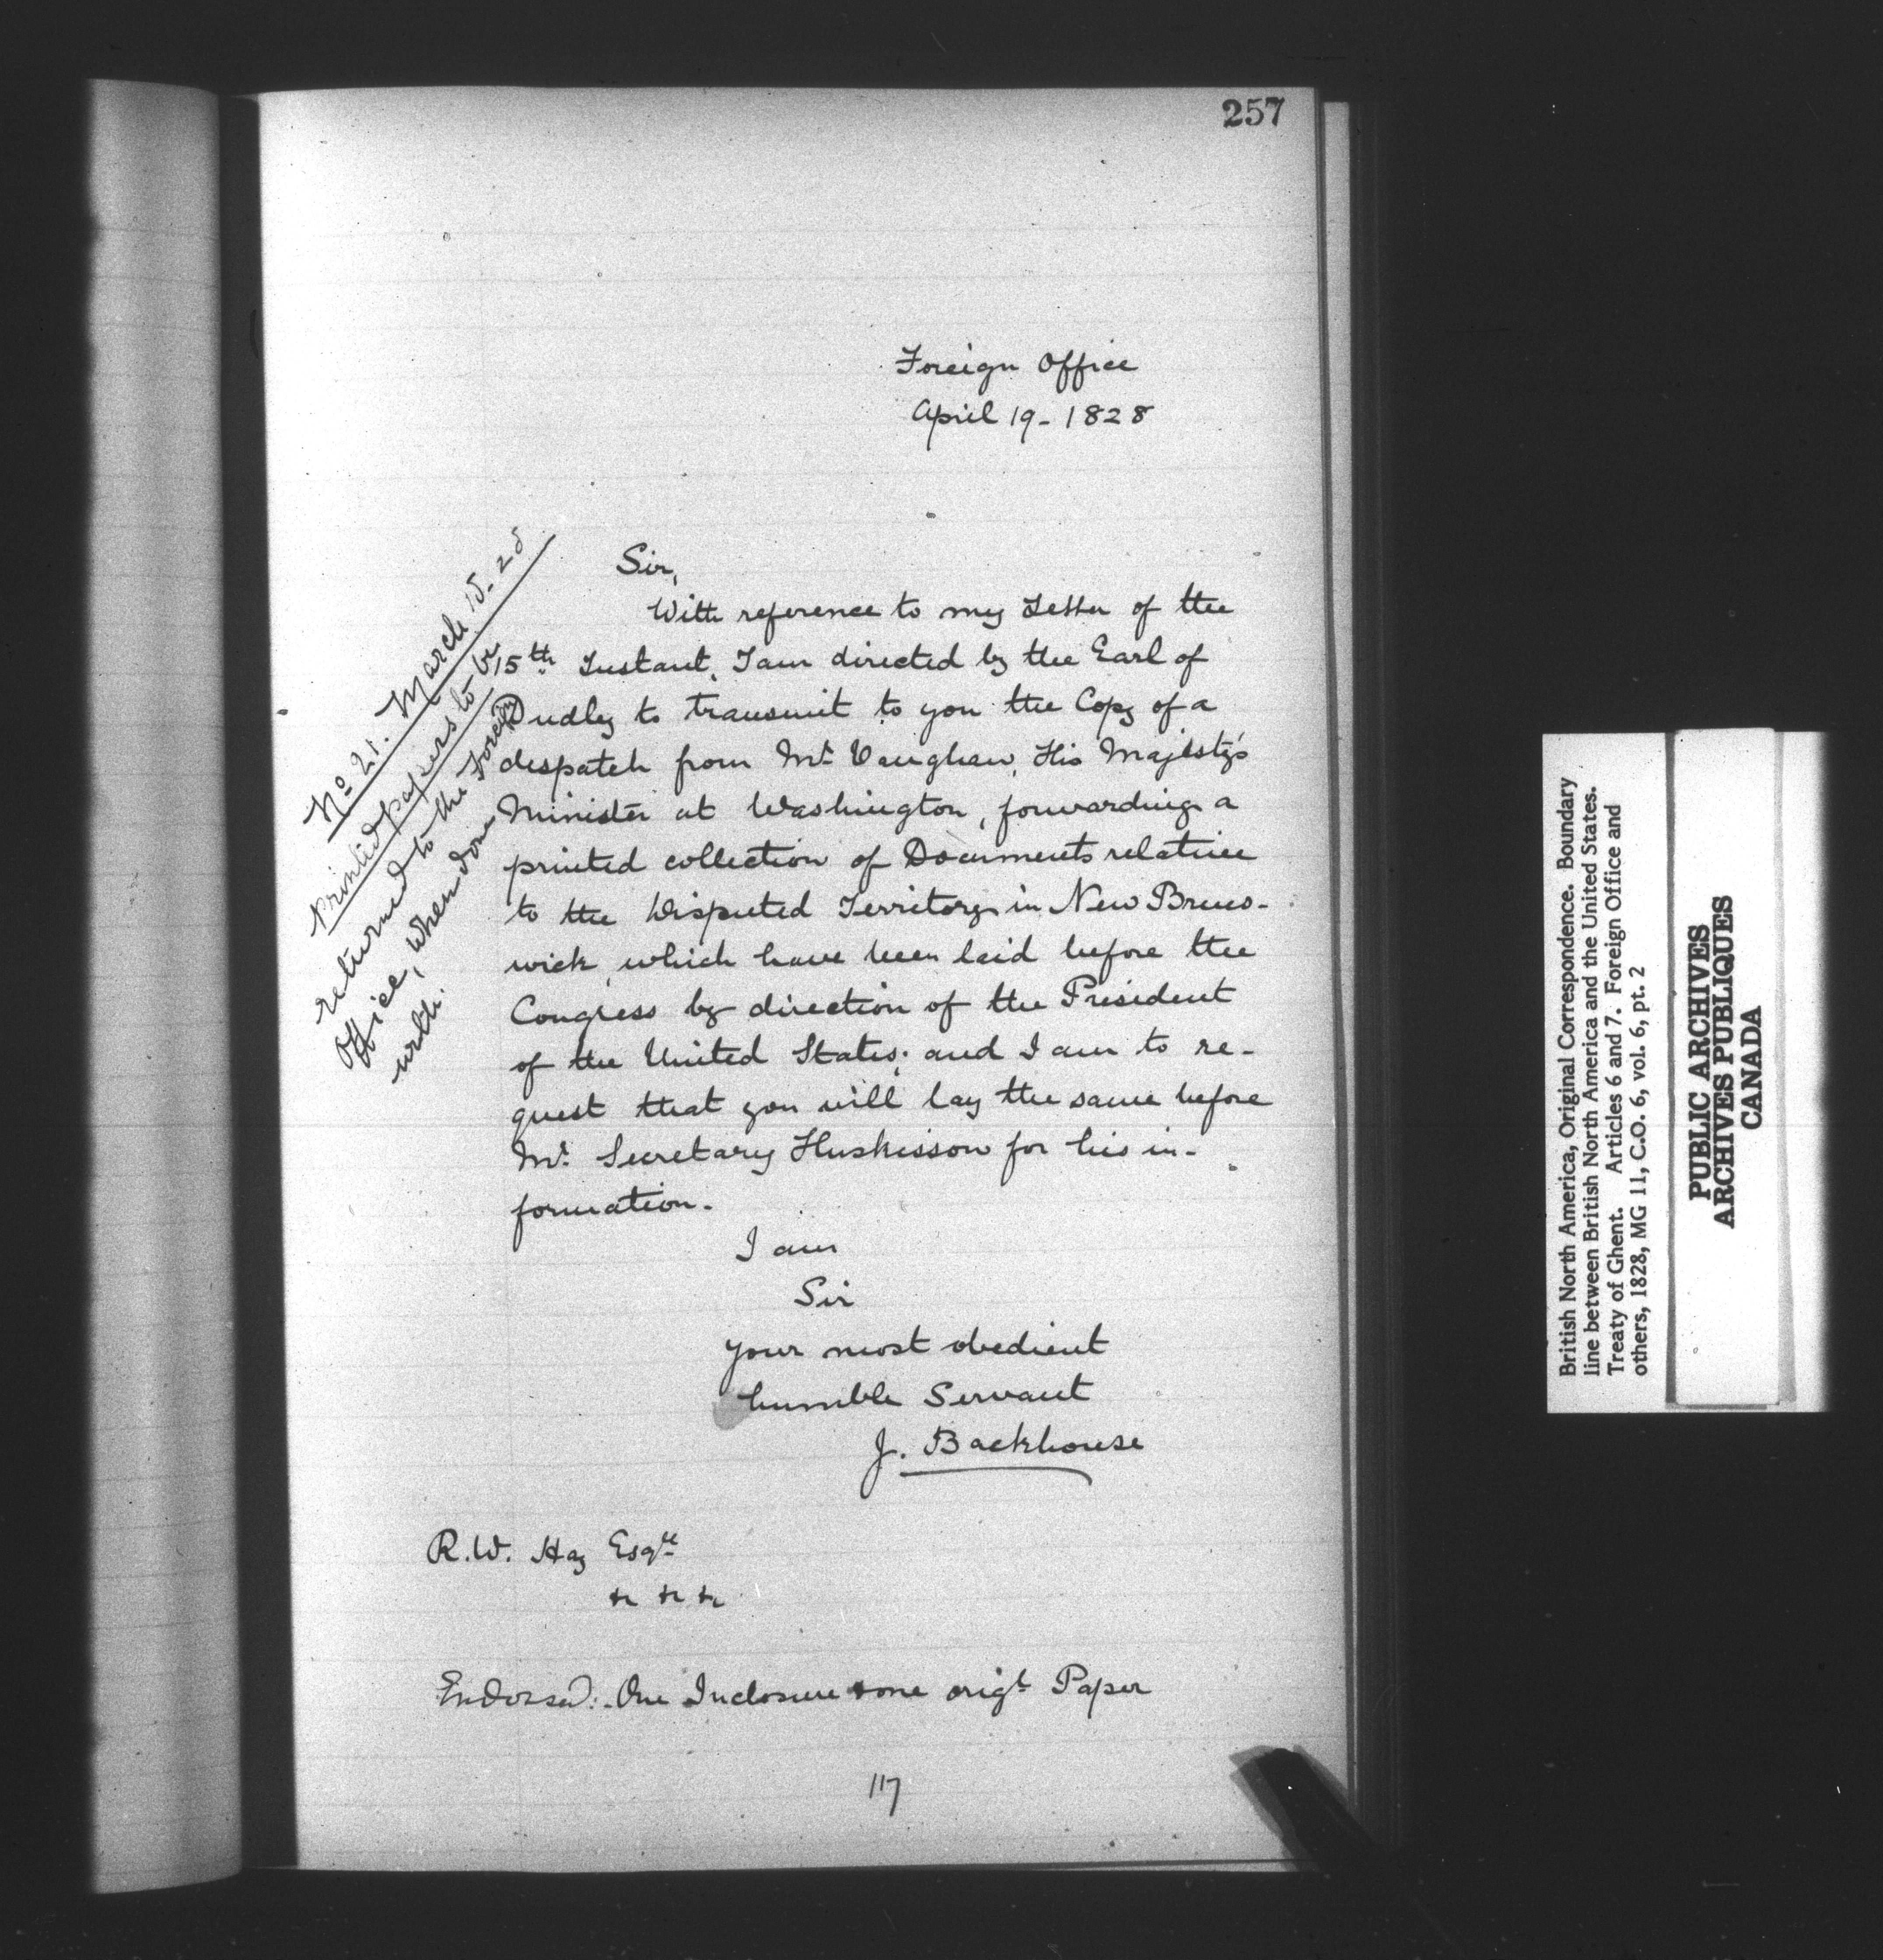 257
Foreign Office
April 19-1828
No 21. March 15. 28
Printed papers to be
returned to the Foreign
Office, when done
with.
Sir,
With reference to my Letter of the
15th Instant, I am directed by the Earl of
Dudley to transmit to you the Copy of a
despatch from Mr. Vaughan, His Majesty's
Minister at Washington, forwarding a
printed collection of Documents relative
to the Disputed Territory in New Bruns-
wick, which have been laid before the
Congress by direction of the President
of the United States; and I am to re-
quest that you will lay the same before
Mr. Secretary Huskisson for his in-
formation.
I am
Sir
your most obedient
humble Servant
J. Backhouse
R.W. Hay Esqre
&c &c &c
Endorsed:- One Inclosure & one origl. Paper
117
British North America, Original Correspondence. Boundary
line between British North America and the United States.
Treaty of Ghent. Articles 6 and 7. Foreign Office and
others, 1828, MG 11, C.O. 6, vol. 6, pt. 2
PUBLIC ARCHIVES
ARCHIVES PUBLIQUES
CANADA